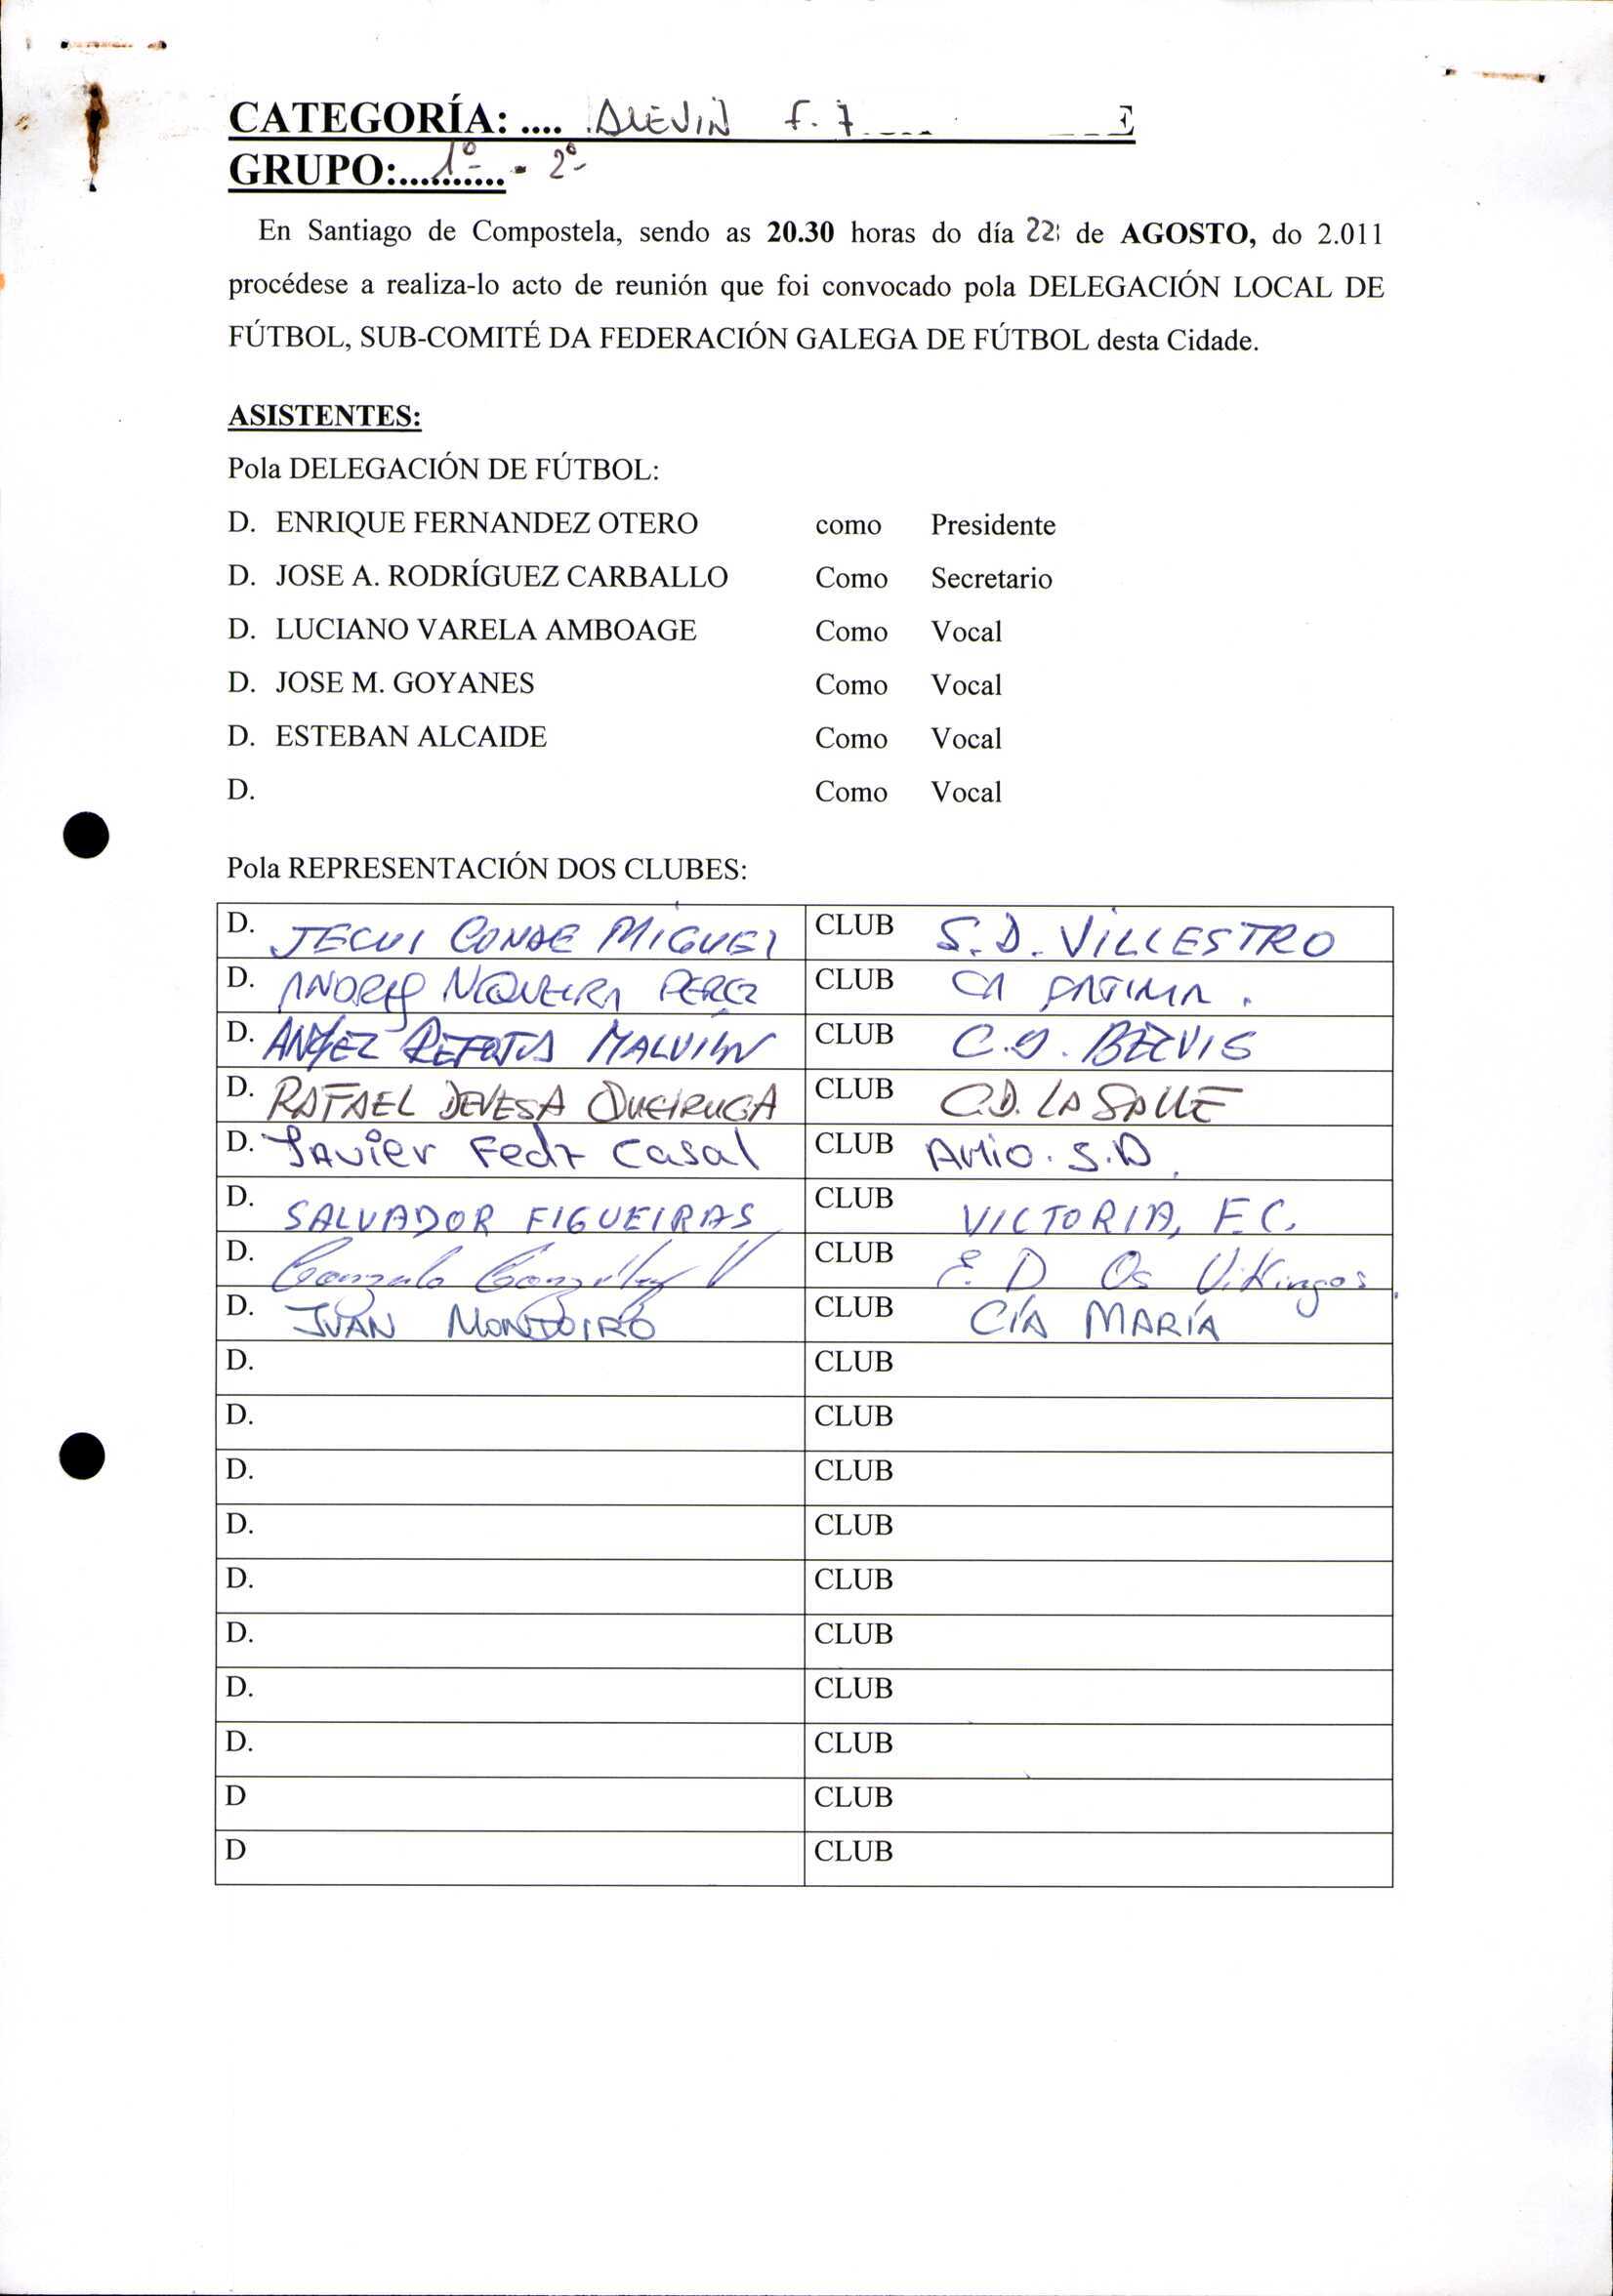 CATEGORÍA: .... ALEVIN F. 7 E
GRUPO:........... 1º - 2º
En Santiago de Compostela, sendo as 20.30 horas do día 22 de AGOSTO, do 2.011
procédese a realiza-lo acto de reunión que foi convocado pola DELEGACIÓN LOCAL DE
FÚTBOL, SUB-COMITÉ DA FEDERACIÓN GALEGA DE FÚTBOL desta Cidade.
ASISTENTES:
Pola DELEGACIÓN DE FÚTBOL:
D. ENRIQUE FERNANDEZ OTERO como Presidente
D. JOSE A. RODRÍGUEZ CARBALLO Como Secretario
D. LUCIANO VARELA AMBOAGE Como Vocal
D. JOSE M. GOYANES Como Vocal
D. ESTEBAN ALCAIDE Como Vocal
D. Como Vocal
Pola REPRESENTACIÓN DOS CLUBES:
D. CONDE MIGUEL CLUB S.D. VILLESTRO
D. PEREZ CLUB FATIMA.
D. ANGEL MALVIN CLUB C.D. BELVIS
D. RAFAEL DEVESA QUEIRUGA CLUB C.D. LA SALLE
D. Javier Fedz Casal CLUB AMIO. S.D.
D. SALVADOR FIGUEIRAS CLUB VICTORIA, F.C.
D. Gonzalo González V CLUB E. D Os Vikingos
D. JUAN MONTOIRO CLUB CÍA MARÍA
D. CLUB
D. CLUB
D. CLUB
D. CLUB
D. CLUB
D. CLUB
D. CLUB
D. CLUB
D CLUB
D CLUB